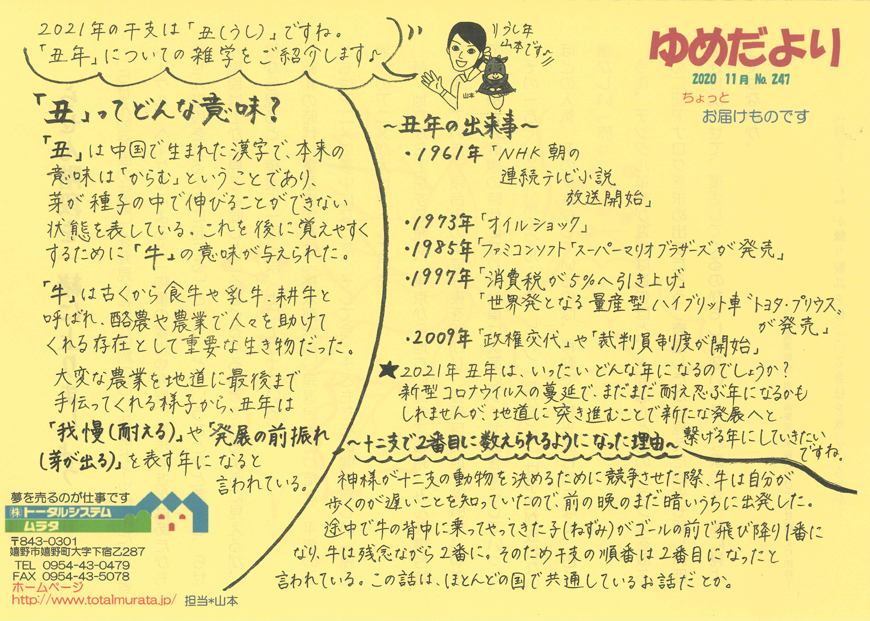 2021年の干支は「丑(うし)」ですね。
「丑年」についての雑学をご紹介します♪
うし年
山本です
山本
ゆめだより
2020 11月 No. 247
ちょっと
お届けものです
「丑」ってどんな意味?
「丑」は中国で生まれた漢字で、本来の
意味は「からむ」ということであり、
芽が種子の中で伸びることができない
状態を表している。これを後に覚えやすく
するために「牛」の意味が与えられた。
「牛」は古くから食牛や乳牛、耕牛と
呼ばれ、酪農や農業で人々を助けて
くれる存在として重要な生き物だった。
大変な農業を地道に最後まで
手伝ってくれる様子から、丑年は
「我慢(耐える)」や「発展の前振れ
(芽が出る)」を表す年になると
言われている。
~丑年の出来事~
・1961年「NHK 朝の
連続テレビ小説
放送開始」
・1973年「オイルショック」
・1985年「ファミコンソフト「スーパーマリオブラザーズ」が発売」
・1997年「消費税が5%へ引き上げ」
「世界発となる量産型ハイブリット車"トヨタ・プリウス"
が発売」
・2009年「政権交代」や「裁判員制度が開始」
★2021年丑年は、いったいどんな年になるのでしょうか?
新型コロナウイルスの蔓延で、まだまだ耐え忍ぶ年になるかも
しれませんが、地道に突き進むことで新たな発展へと
繋げる年にしていきたい
ですね。
~十二支で2番目に数えられるようになった理由~
神様が十二支の動物を決めるために競争させた際、牛は自分が
歩くのが遅いことを知っていたので、前の晩のまだ暗いうちに出発した。
途中で牛の背中に乗ってやってきた子(ねずみ)がゴールの前で飛び降り1番に
なり、牛は残念ながら2番に。そのため干支の順番は2番目になったと
言われている。この話は、ほとんどの国で共通しているお話だとか。
夢を売るのが仕事です
㈱トータルシステム
ムラタ
〒843-0301
嬉野市嬉野町大字下宿乙287
TEL 0954-43-0479
FAX 0954-43-5078
ホームページ
http://www.totalmurata.jp/ 担当*山本